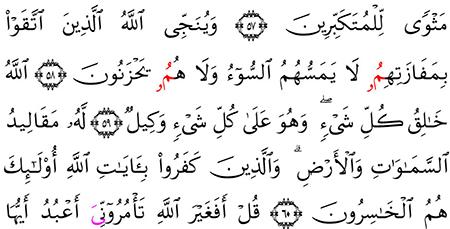 مَثْوًى لِّلْمُتَكَبِّرِينَ ۝٥٧ وَيُنَجِّى ٱللَّهُ ٱلَّذِينَ ٱتَّقَوْا۟
بِمَفَازَتِهِمُۥ لَا يَمَسُّهُمُ ٱلسُّوٓءُ وَلَا هُمُۥ يَحْزَنُونَ ۝٥٨ ٱللَّهُ
خَٰلِقُ كُلِّ شَىْءٍۖ وَهُوَ عَلَىٰ كُلِّ شَىْءٍ وَكِيلٌ ۝٥٩ لَّهُۥ مَقَالِيدُ
ٱلسَّمَٰوَٰتِ وَٱلْأَرْضِۗ وَٱلَّذِينَ كَفَرُوا۟ بِـَٔايَٰتِ ٱللَّهِ أُو۟لَٰٓئِكَ
هُمُ ٱلْخَٰسِرُونَ ۝٦٠ قُلْ أَفَغَيْرَ ٱللَّهِ تَأْمُرُوٓنِىَ أَعْبُدُ أَيُّهَا